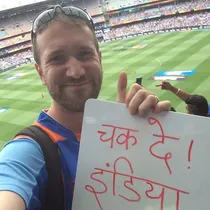 चक दे!
इंडिया